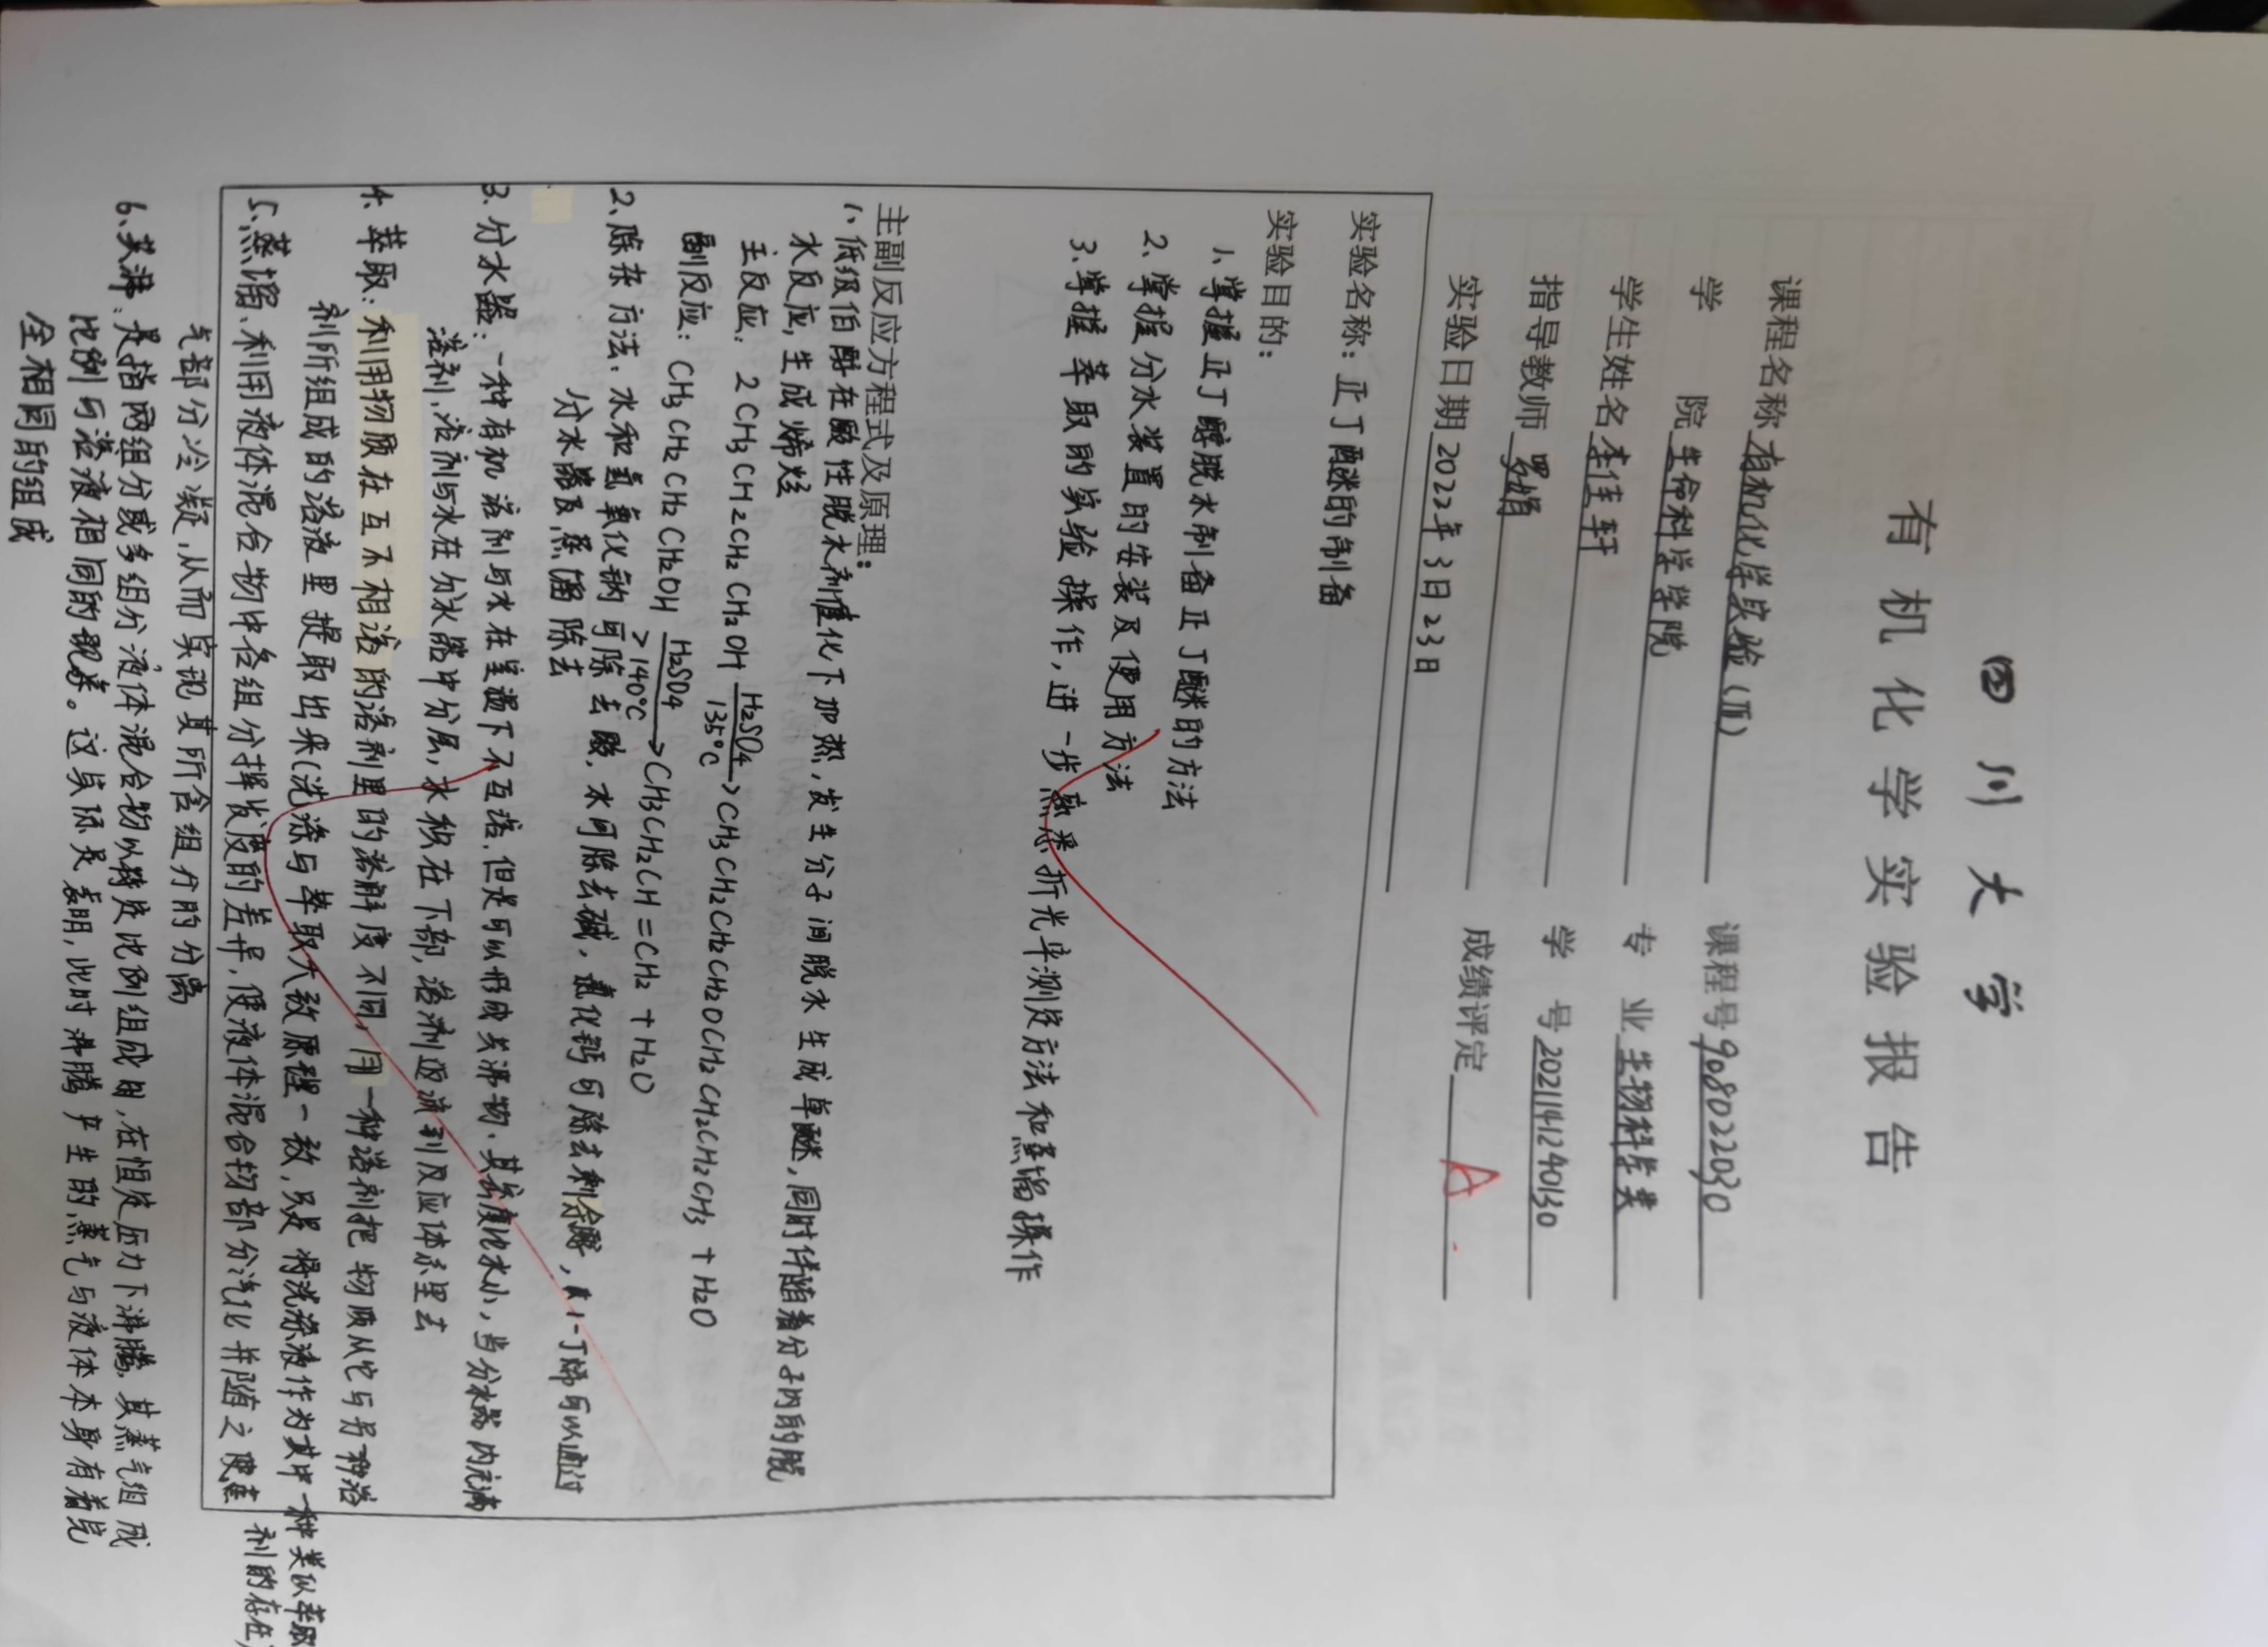 四川大学
有机化学实验报告
课程名称 有机化学实验(Ⅱ) 课程号 908022030
学 院 生命科学学院 专 业 生物科学类
学生姓名 李佳轩 学 号 2021141240130
指导教师 罗娟 成绩评定 A
实验日期 2022年3日23日
实验名称：正丁醚的制备
实验目的：
1、掌握正丁醇脱水制备正丁醚的方法
2、掌握分水装置的安装及使用方法
3、掌握萃取的实验操作,进一步熟悉折光率测定方法和蒸馏操作
主副反应方程式及原理：
1、低级伯醇在酸性脱水剂催化下加热,发生分子间脱水生成单醚,同时伴随着分子内的脱
水反应,生成烯烃
主反应: 2CH3CH2CH2CH2OH H2SO4 135°C → CH3CH2CH2CH2OCH2CH2CH2CH3 + H2O
副反应: CH3CH2CH2CH2OH H2SO4 >140°C → CH3CH2CH=CH2 + H2O
2、除杂方法:水和氢氧化钠可除去酸,水可除去碱,氯化钙可除去剩余醇, 1-丁烯可以通过
分水器及蒸馏除去
3、分水器:一种有机溶剂与水在室温下不互溶,但是可以形成共沸物,其密度比水小,当分水器内充满
溶剂,溶剂与水在分水器中分层,水积在下部,溶剂回流到反应体系里去
4、萃取:利用物质在互不相溶的溶剂里的溶解度不同,用一种溶剂把物质从它与另一种溶
剂所组成的溶液里提取出来(洗涤与萃取大致原理一致,只是将洗涤液作为其中一种类似萃取
剂的存在)
5、蒸馏:利用液体混合物中各组分挥发度的差异,使液体混合物部分汽化并随之使蒸
气部分冷凝,从而实现其所含组分的分离
6、共沸:是指两组分或多组分液体混合物以特定比例组成时,在恒定压力下沸腾,其蒸气组成
比例与溶液相同的现象。这实际是表明,此时沸腾产生的蒸气与液体本身有着完
全相同的组成